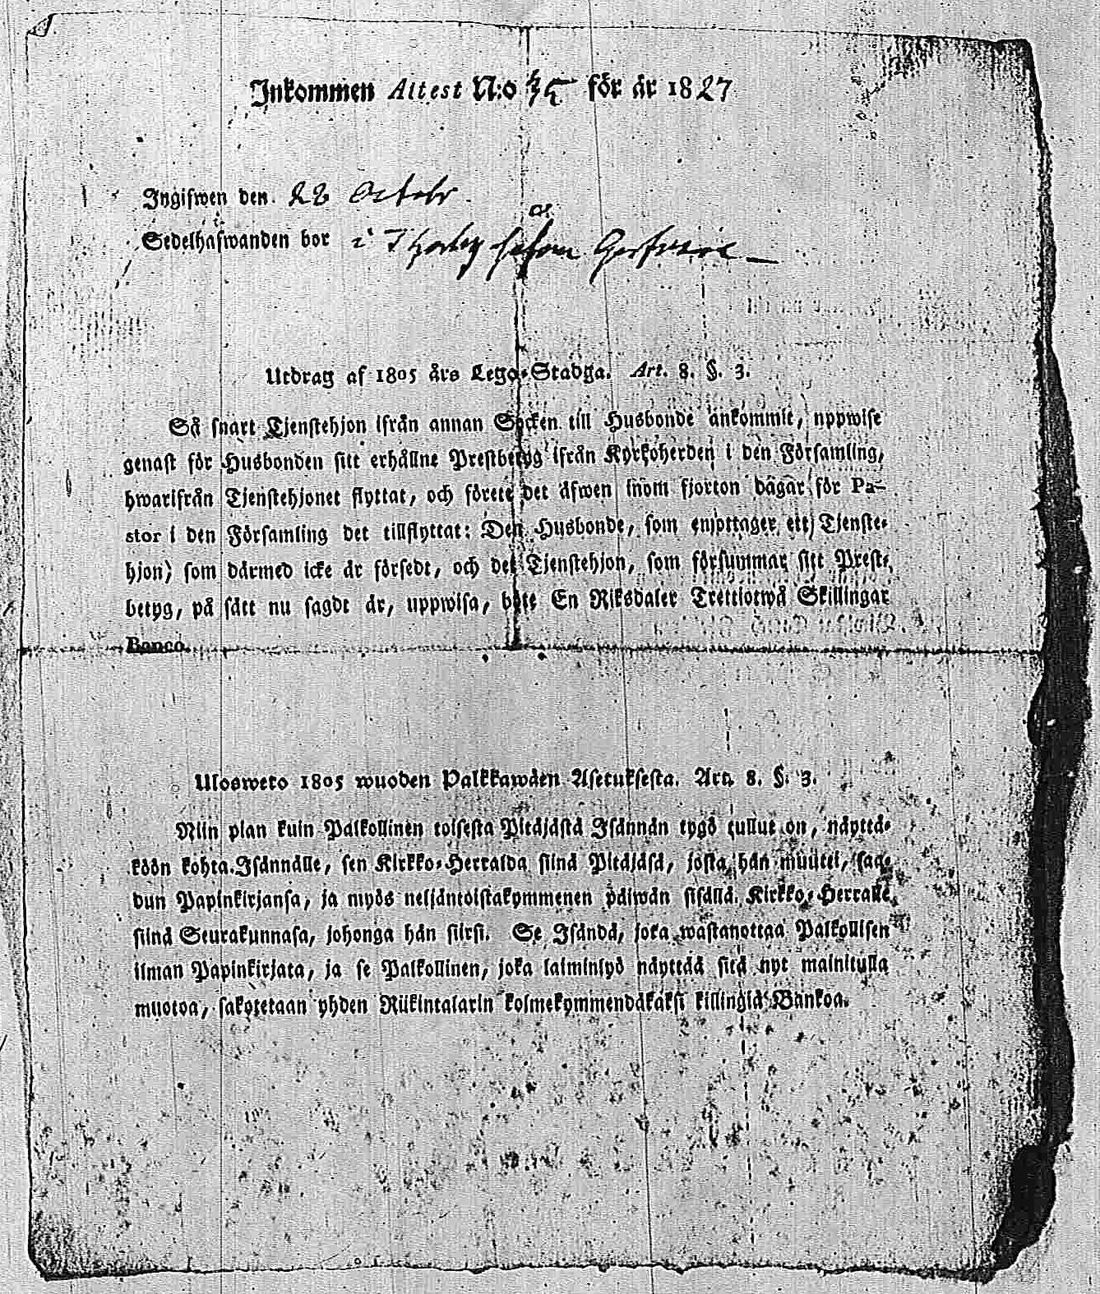 Inkommen Attest N:o 35 för år 1827
Ingifwen den 22 Octobr
Sedelhafwanden bor i
Utdrag af 1805 års Lego-Stadga. Art. 8. §. 3.
Så snart Tjenstehjon ifrån annan Socken till Husbonde ankommit, uppwise
genast för Husbonden sitt erhållne Prestbetyg ifrån Kyrkoherden i den Församling,
hwarifrån Tjenstehjonet flyttat, och förete det äfwen inom fjorton dagar för Pa-
stor i den Församling det tillflyttat: Den Husbonde, som emottager ett Tjenste-
hjon, som därmed icke är försedt, och det Tjenstehjon, som försummar sitt Preste-
betyg, på sätt nu sagdt är, uppwisa, böte En Riksdaler Trettiotwå Skillingar
Banco.
Ulosweto 1805 wuoden Palkkawäen Asetuksesta. Art. 8. §. 3.
Niin pian kuin Palkollinen toisesta Pitäjästä Isännän tygö tullut on, näyttä-
köön kohta Isännälle, sen Kirkko-Herralda siinä Pitäjäsä, josta hän muutti, saa-
dun Papinkirjansa, ja myös neljäntoistakymmenen päiwän sisällä Kirkko-Herralle
siinä Seurakunnasa, johonga hän siirsi. Se Isändä, joka wastanottaa Palkollisen
ilman Papinkirjata, ja se Palkollinen, joka laiminlyö näyttää sitä nyt mainitulla
muotoa, sakotetaan yhden Riikintalarin kolmekymmendäkaksi killingiä Bankoa.